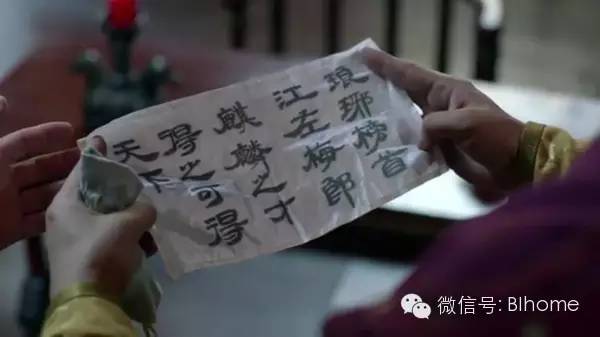 琅琊榜首
江左梅郎
麒麟之才
得之可得
天下
微信号: BIhome